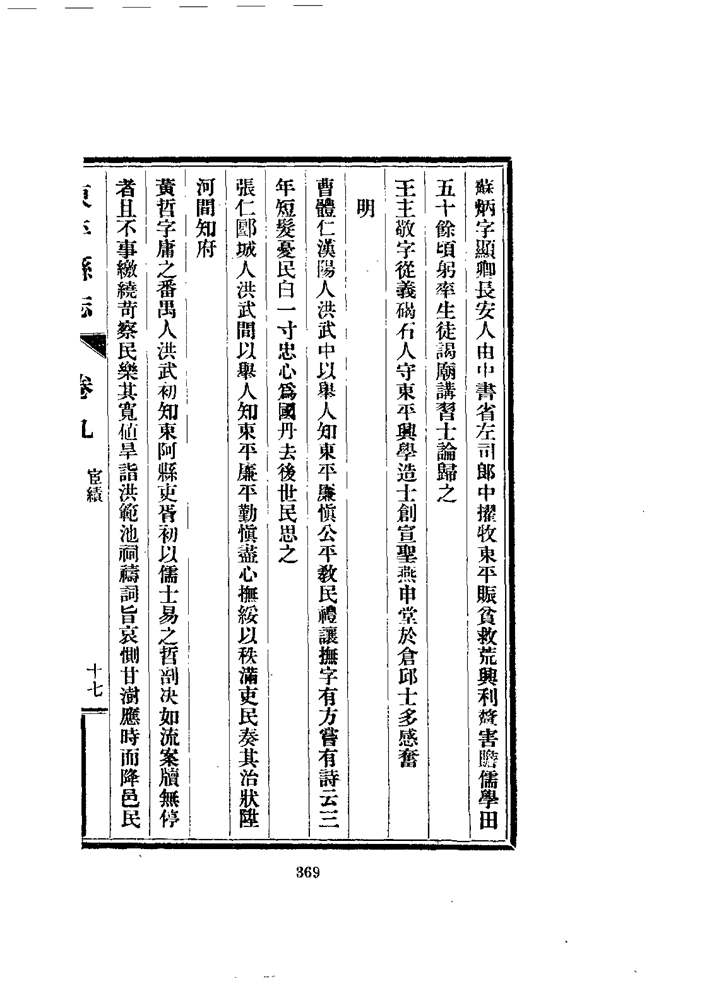 蘇炳字顯卿長安人由中書省左司郎中擢牧東平賑貧救荒興利釐害贍儒學田
五十餘頃躬率生徒謁廟講習士論歸之
王主敬字從義碣石人守東平興學造士創宣聖燕申堂於倉邱士多感奮
明
曹體仁漢陽人洪武中以舉人知東平廉愼公平敎民禮讓撫字有方嘗有詩云三
年短髮憂民白一寸忠心爲國丹去後世民思之
張仁郾城人洪武間以舉人知東平廉平勤愼盡心撫綏以秩滿吏民奏其治狀陞
河間知府
黃哲字庸之番禺人洪武初知東阿縣吏胥初以儒士易之哲剖决如流案牘無停
者且不事繳繞苛察民樂其寬値旱詣洪範池祠禱詞旨哀惻甘澍應時而降邑民
東平縣志 卷九 宦績 十七
369